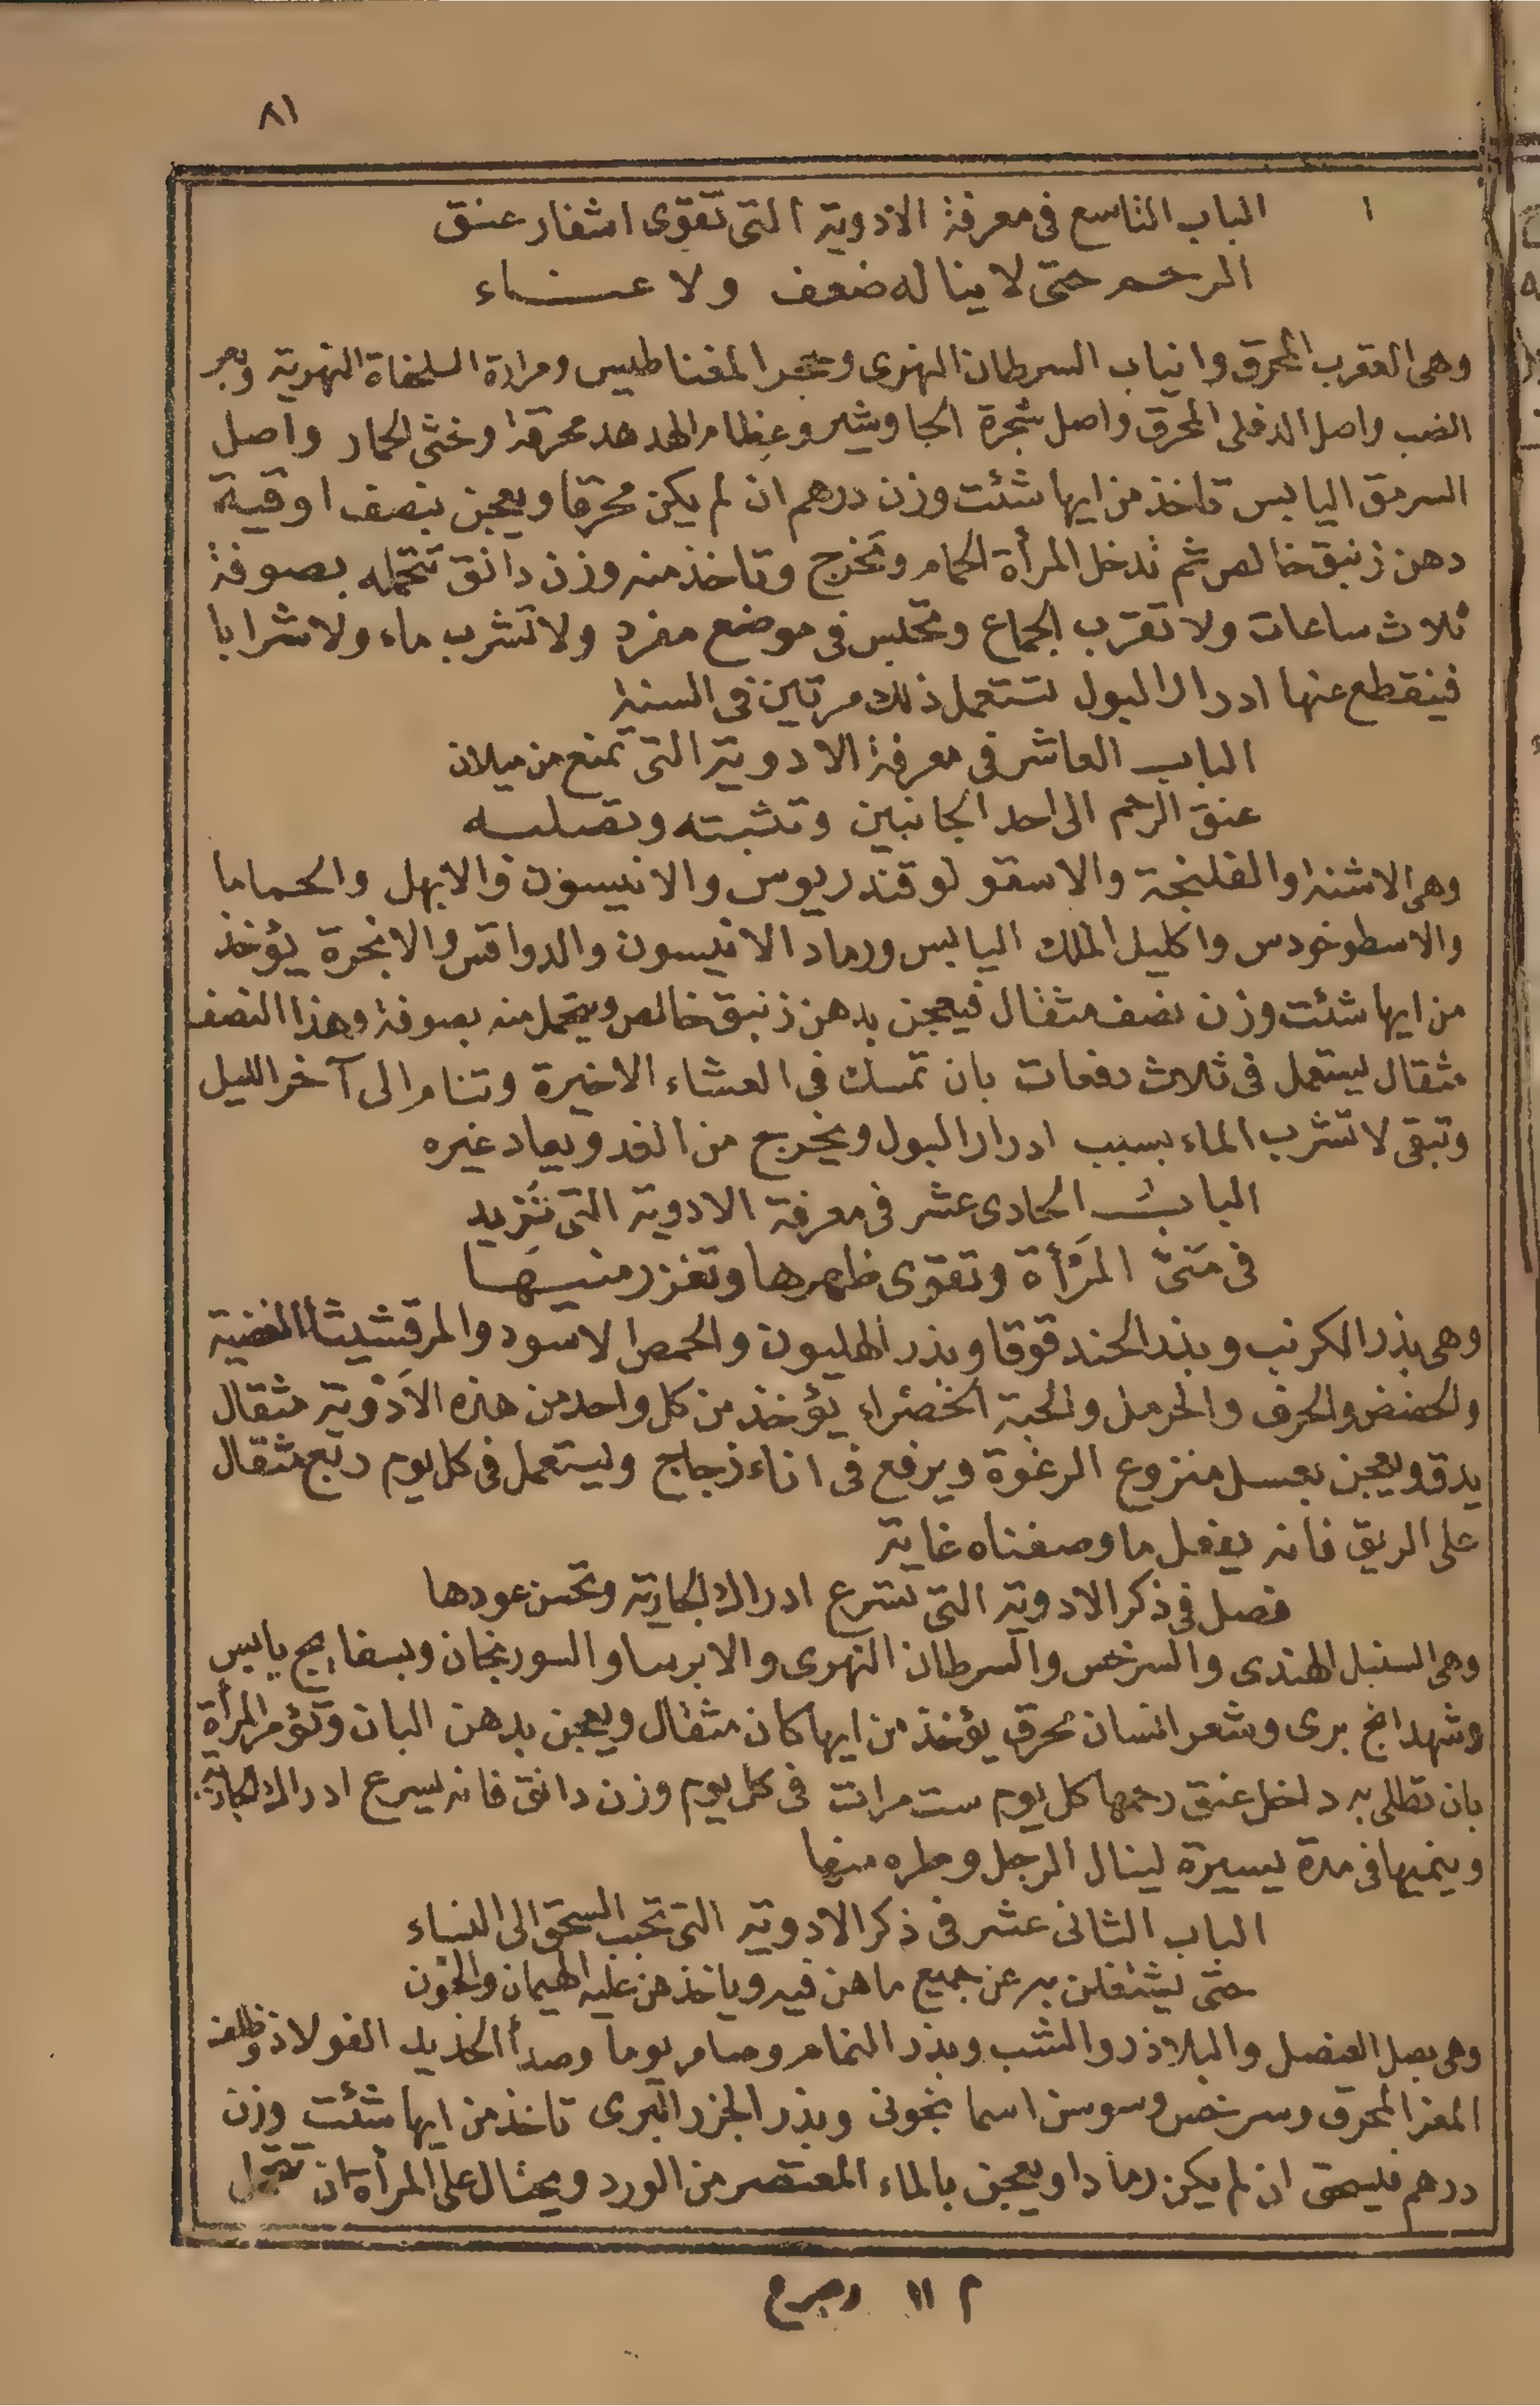 ٨١
الباب التاسع فى معرفة الادوية التى تقوى اشفار عنق
الرحم حتى لا يناله ضعف ولا عناء
وهى العقرب المحرق وانياب السرطان النهرى وحجر المغناطيس ومرارة السلحفاة النهرية وبعر
الضب واصل الدفلى المحرق واصل شجرة الجاوشير وعظام الهدهد محرقة اوخثى الحمار واصل
السرمق اليابس تاخذ من ايها شئت وزن درهم ان لم يكن محرقا ويعجن بنصف اوقية
دهن زنبق خالص ثم تدخل المرأة الحمام وتخرج وتاخذ منه وزن دانق تتحمله بصوفة
ثلاث ساعات ولا تقرب الجماع وتجلس فى موضع مفرد ولا تشرب ماء ولا شرابا
فينقطع عنها ادرار البول تستعمل ذلك مرتين فى السنة
الباب العاشر فى معرفة الادوية التى تمنع من ميلان
عنق الرحم الى احد الجانبين وتثبته وتصلبه
وهى الاشنه والفلنجة والاسقولوقندريوس والانيسون والابهل والحماما
والاسطوخودس واكليل الملك اليابس ورماد الانيسون والدواقس والانجرة يؤخذ
من ايها شئت وزن نصف مثقال فيعجن بدهن زنبق خالص ويتحمل منه بصوفة وهذا النصف
مثقال يستعمل فى ثلاث دفعات بان تمسك فى العشاء الاخيرة وتنام الى آخر الليل
وتبقى لا تشرب الماء بسبب ادرار البول ويخرج من الغد ويعاد غيره
الباب الحادى عشر فى معرفة الادوية التى تزيد
فى منىّ المرأة وتقوى ظهرها وتغزر منيها
وهى بذر الكرنب وبذر الحندقوقا وبذر الهليون والحمص الاسود والمرقشيثا الفضية
والحضض والحرف والحرمل والحبة الخضراء يؤخذ من كل واحد من هذه الادوية مثقال
يدق ويعجن بعسل منزوع الرغوة ويرفع فى اناء زجاج ويستعمل فى كل يوم ربع مثقال
على الريق فانه يفعل ما وصفناه غاية
فصل فى ذكر الادوية التى تسرع ادراك الجارية وتحسن عودها
وهى السنبل الهندى والسرخس والسرطان النهرى والايرسا والسورنجان وبسفايج يابس
وشهدانج برى وشعر انسان محرق يؤخذ من ايها كان مثقال ويعجن بدهن البان وتؤمر المرأة
بان تطلى به داخل عنق رحمها كل يوم ست مرات فى كل يوم وزن دانق فانه يسرع ادراك الجارية
وينميها فى مدة يسيرة لينال الرجل وطره منها
الباب الثانى عشر فى ذكر الادوية التى تحبب السحق الى النساء
حتى يشتغلن به عن جميع ما هن فيه وياخذهن عليه الهيمان والجنون
وهى بصل العنصل والبلاذر والشب وبذر النمام وصامر يوما وصدأ الحديد الفولاذ وظلف
المعز المحرق وسرخس وسوسن اسمانجونى وبذر الجزر البرى تاخذ من ايها شئت وزن
درهم فيسحق ان لم يكن رمادا ويعجن بالماء المعتصر من الورد ويحتال على المرأة ان تتحمل
م ١١